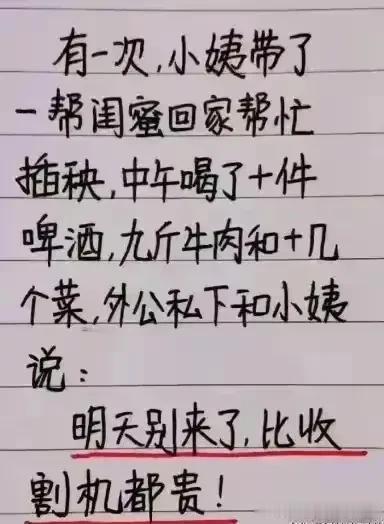 有一次,小姨带了
一帮闺蜜回家帮忙
插秧,中午喝了十件
啤酒,九斤牛肉和十几
个菜,外公私下和小姨
说:
明天别来了,比收
割机都贵!